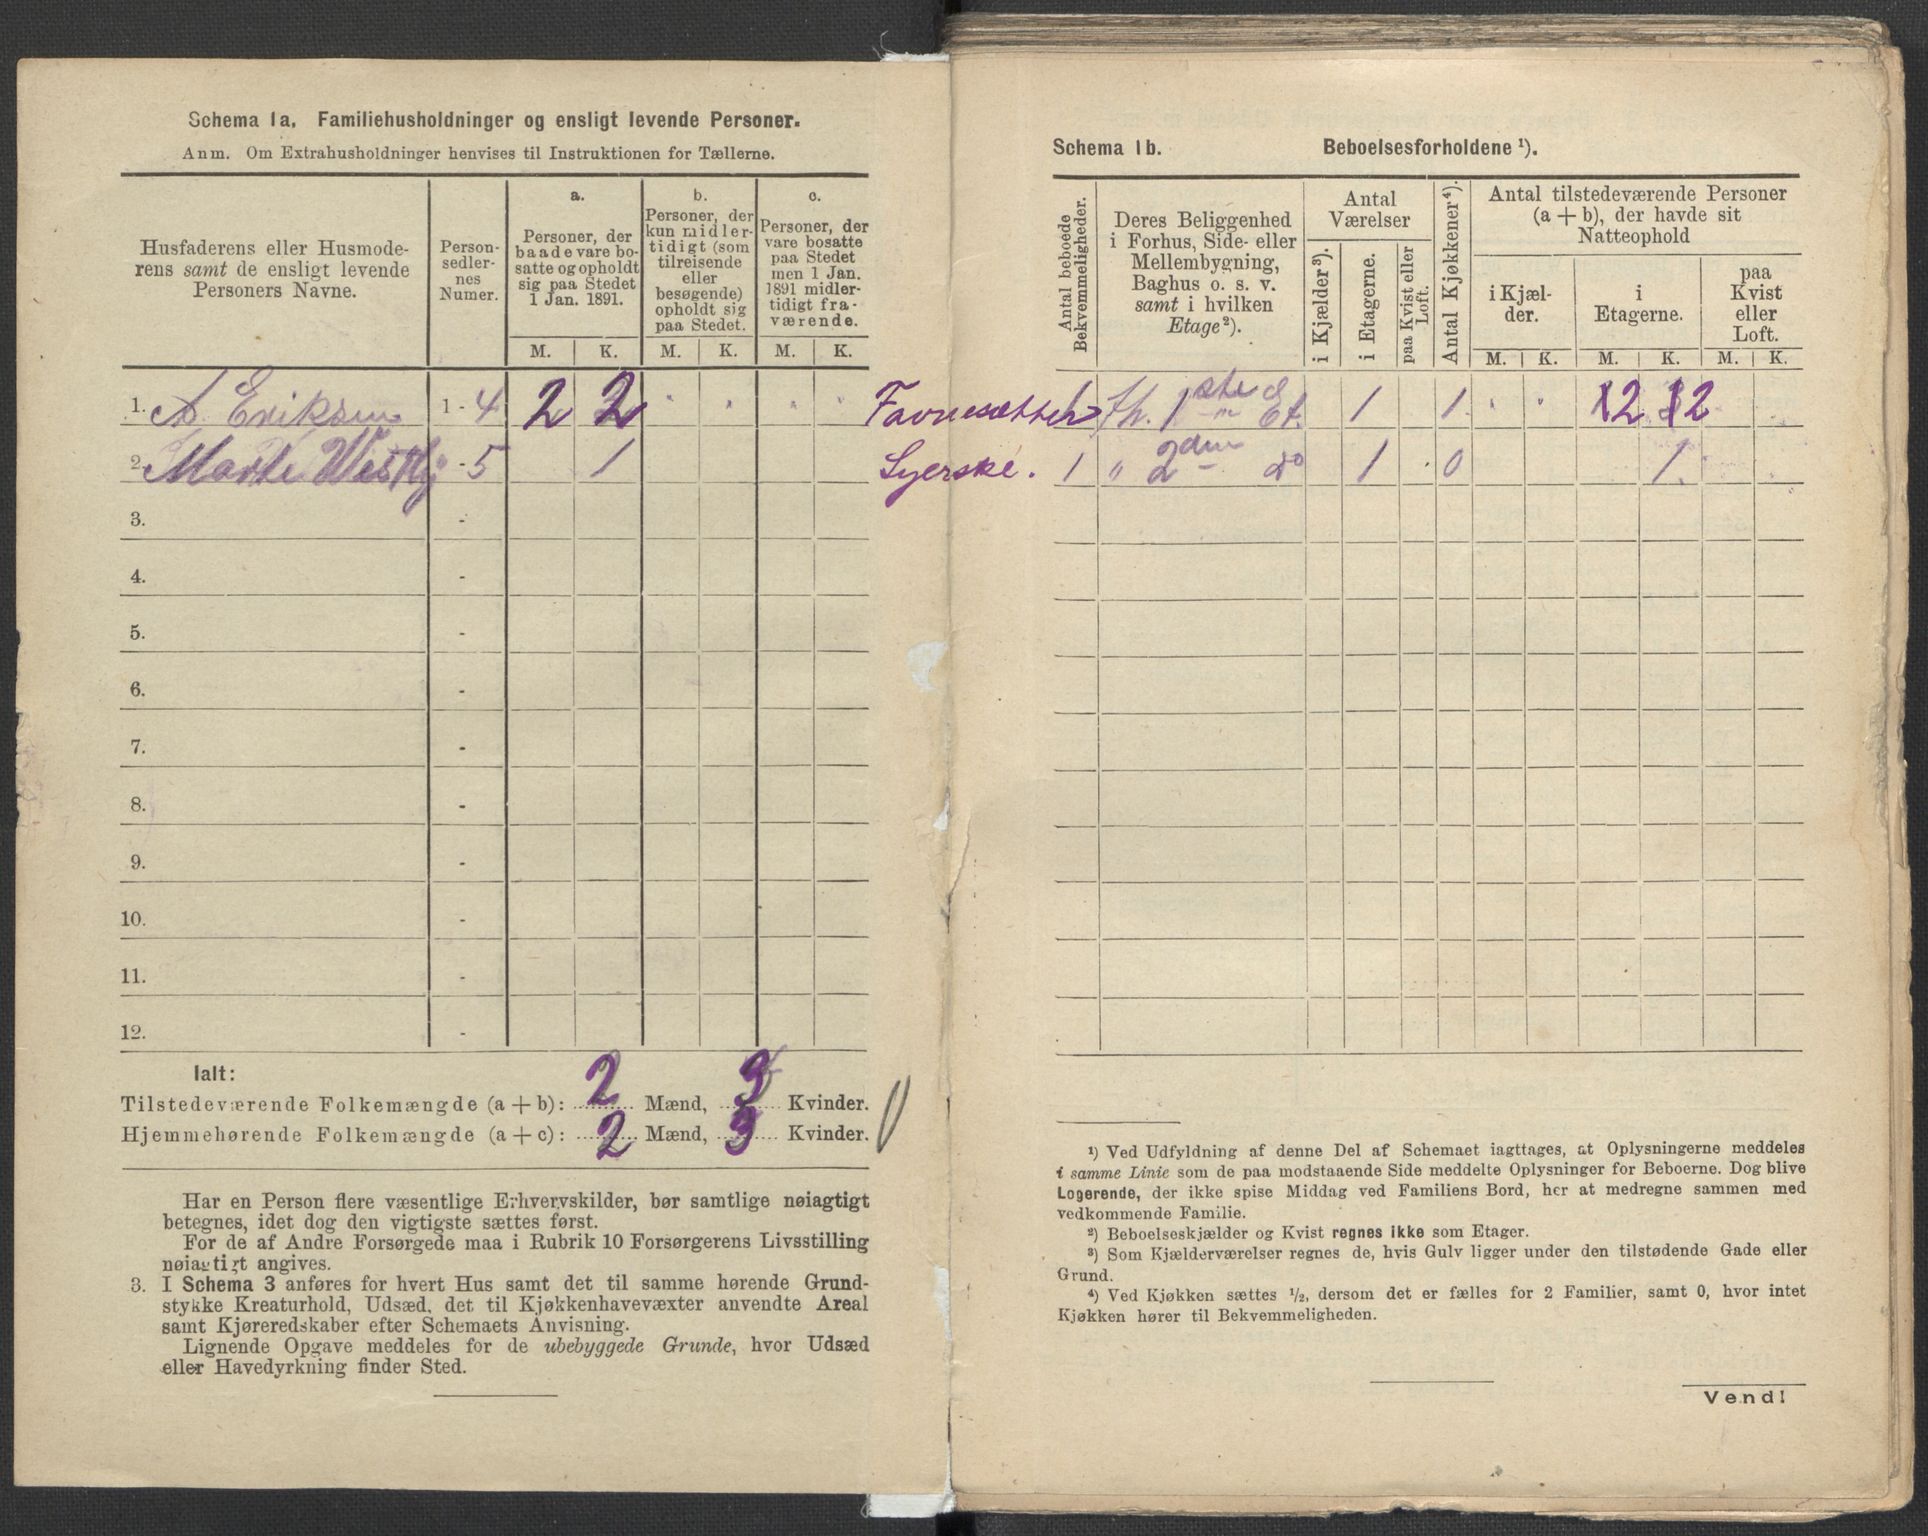 Schema 1a. Familiehusholdninger og ensligt levende Personer.
Anm. Om Extrahusholdninger henvises til Instruktionen for Tællerne.
Husfaderens eller Husmode-
rens samt de ensligt levende
Personers Navne.
Person-
sedler-
nes
Numer.
a.
Personer, der
baade vare bo-
satte og opholdt
sig paa Stedet
1 Jan. 1891.
b.
Personer, der
kun midler-
tidigt (som
tilreisende
eller
besøgende)
opholdt sig
paa Stedet.
c.
Personer, der
vare bosatte
paa Stedet
men 1 Jan.
1891 midler-
tidigt fra-
værende.
M. K. M. K. M. K.
1. A. Eriksen 1 - 4 2 2 " " " "
2. Marte Westby - 5 1
3. -
4. -
5. -
6. -
7. -
8. -
9. -
10. -
11. -
12. -
Ialt:
Tilstedeværende Folkemængde (a + b): 2 Mænd, 3 Kvinder.
Hjemmehørende Folkemængde (a + c): 2 Mænd, 3 Kvinder.
Har en Person flere væsentlige Erhvervskilder, bør samtlige nøiagtigt
betegnes, idet dog den vigtigste sættes først.
For de af Andre Forsørgede maa i Rubrik 10 Forsørgerens Livsstilling
nøiagtigt angives.
3. I Schema 3 anføres for hvert Hus samt det til samme hørende Grund-
stykke Kreaturhold, Udsæd, det til Kjøkkenhavevæxter anvendte Areal
samt Kjøreredskaber efter Schemaets Anvisning.
Lignende Opgave meddeles for de ubebyggede Grunde, hvor Udsæd
eller Havedyrkning finder Sted.
Schema 1b. Beboelsesforholdene ¹).
Antal beboede
Bekvemmeligheder.
Deres Beliggenhed
i Forhus, Side- eller
Mellembygning,
Baghus o. s. v.
samt i hvilken
Etage ²).
Antal
Værelser
i Kjælder ³).
i Etagerne.
paa Kvist eller
Loft.
Antal Kjøkkener ⁴).
Antal tilstedeværende Personer
(a + b), der havde sit
Natteophold
i Kjæl-
der.
i
Etagerne.
paa
Kvist
eller
Loft.
M. K. M. K. M. K.
Favnesætter 1 Fh. 1ste Et. 1 1 " " 2 2
Syerske. 1 " 2den do 1 0 1
¹) Ved Udfyldning af denne Del af Schemaet iagttages, at Oplysningerne meddeles
i samme Linie som de paa modstaaende Side meddelte Oplysninger for Beboerne. Dog blive
Logerende, der ikke spise Middag ved Familiens Bord, her at medregne sammen med
vedkommende Familie.
²) Beboelseskjælder og Kvist regnes ikke som Etager.
³) Som Kjælderværelser regnes de, hvis Gulv ligger under den tilstødende Gade eller
Grund.
⁴) Ved Kjøkken sættes ½, dersom det er fælles for 2 Familier, samt 0, hvor intet
Kjøkken hører til Bekvemmeligheden.
Vend!